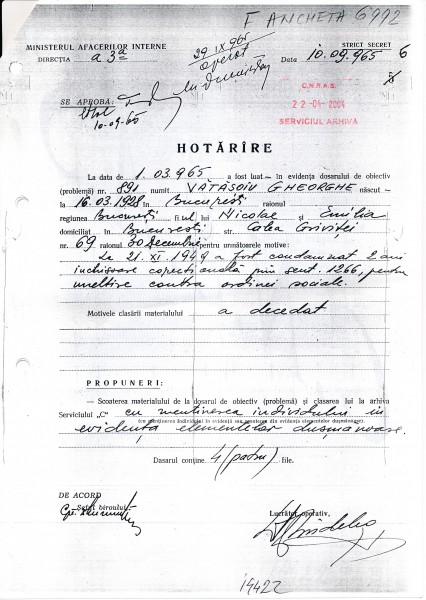 F ANCHETA 6992
MINISTERUL AFACERILOR INTERNE
DIRECȚIA a 3ª
29 IX 965
operat
STRICT SECRET
Data 10.09.965 6
C.N.S.A.S.
22-04-2004
SERVICIUL ARHIVA
SE APROBĂ:
10-09-65
HOTĂRÎRE
La data de 1.03.965 a fost luat — în evidența dosarului de obiectiv
(problemă) nr. 891 numit VĂTĂȘOIU GHEORGHE născut —
la 16.03.1928 în București raionul
regiunea București fiul lui Nicolae și Emilia
domiciliat în București str. Calea Griviței
nr. 69 raionul 30 Decembrie pentru următoarele motive:
La 21. XI. 1949 a fost condamnat 2 ani
închisoare corecțională prin sent. 1266, pentru
uneltire contra ordinei sociale.
Motivele clasării materialului a decedat
PROPUNERI:
— Scoaterea materialului de la dosarul de obiectiv (problemă) și clasarea lui la arhiva
Serviciului „C" cu menținerea individului în
(cu menținerea individului în evidență sau scoaterea din evidența elementelor dușmănoase)
evidența elementelor dușmănoase.
Dosarul conține 4 (patru) file.
DE ACORD
Șeful biroului,
Lucrător operativ,
14422